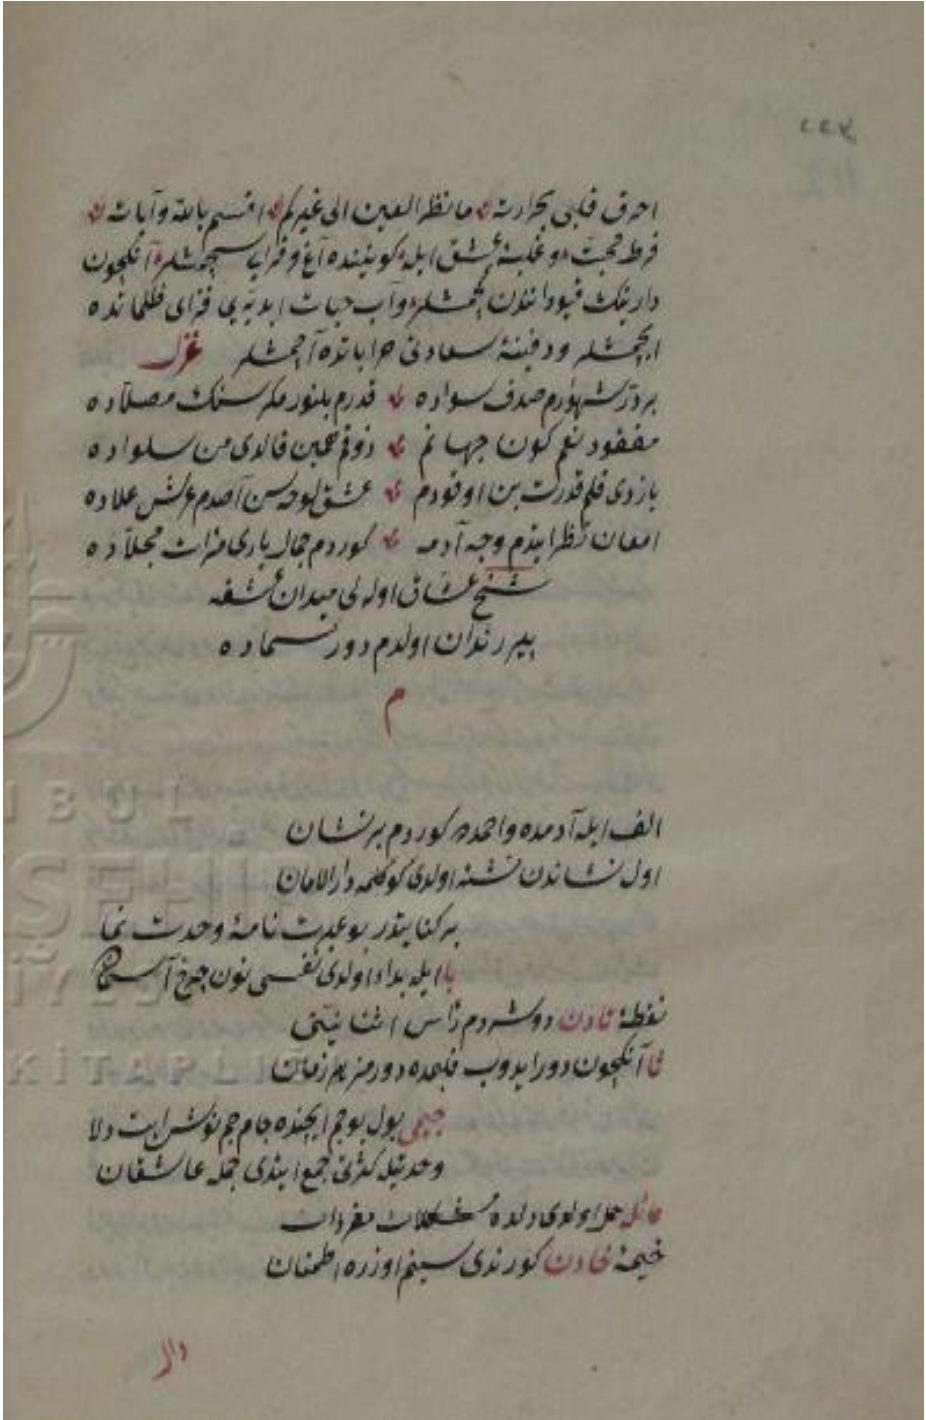 احرق قلبی بحرارته ما نظر العین الی غیرکم اقسم بالله وآیاته
فرط محبت وغلبۀ عشق ایله کوینده آغ وقرایی سچمشلر آنکچون
دارینك قیودانندن کچمشلر وآب حیات ابدیه یی فزای ظلماتده
ایچمشلر ودفینۀ سعادتی خراباتده آچمشلر غزل
بر در شهوارم صدف سواده قدرم بلنور مکر سنك مصلاده
مفقود نعم کون جهانم ذوقم همین قالدی من سلواده
یازدی قلم قدرت بن اوقودم عشق لوحه سن آصدم عرش علاده
امعان نظر ایتدم وجه آدمه کوردم جمال یاری مرات مجلاده
شیخ عشاق اولدلی میدان عشقه
پیر رندان اولدم دور سماده
م
الف ایله آدمده واحده کوردم بر نشان
اول نشاندن نشئه اولدی کوکلمه دار الامان
بر کتابتدر بو عبرت نامۀ وحدت نما
با ایله بداء اولدی نفسی نون چرخ آسمان
نقطۀ تادن دوشردم راس اثنانیتی
ثا آنکچون دور ایدوب قلبمده دور منر زمان
جیمی بول بو جم ایچنده جام جم نوش ایت دلا
وحدتیله کثرتی جمع ایتدی جمله عاشقان
حائله حل اولدی دلده مشکلات مفردات
خیمۀ خادن کورندی سینم اوزره اطمنان
دال